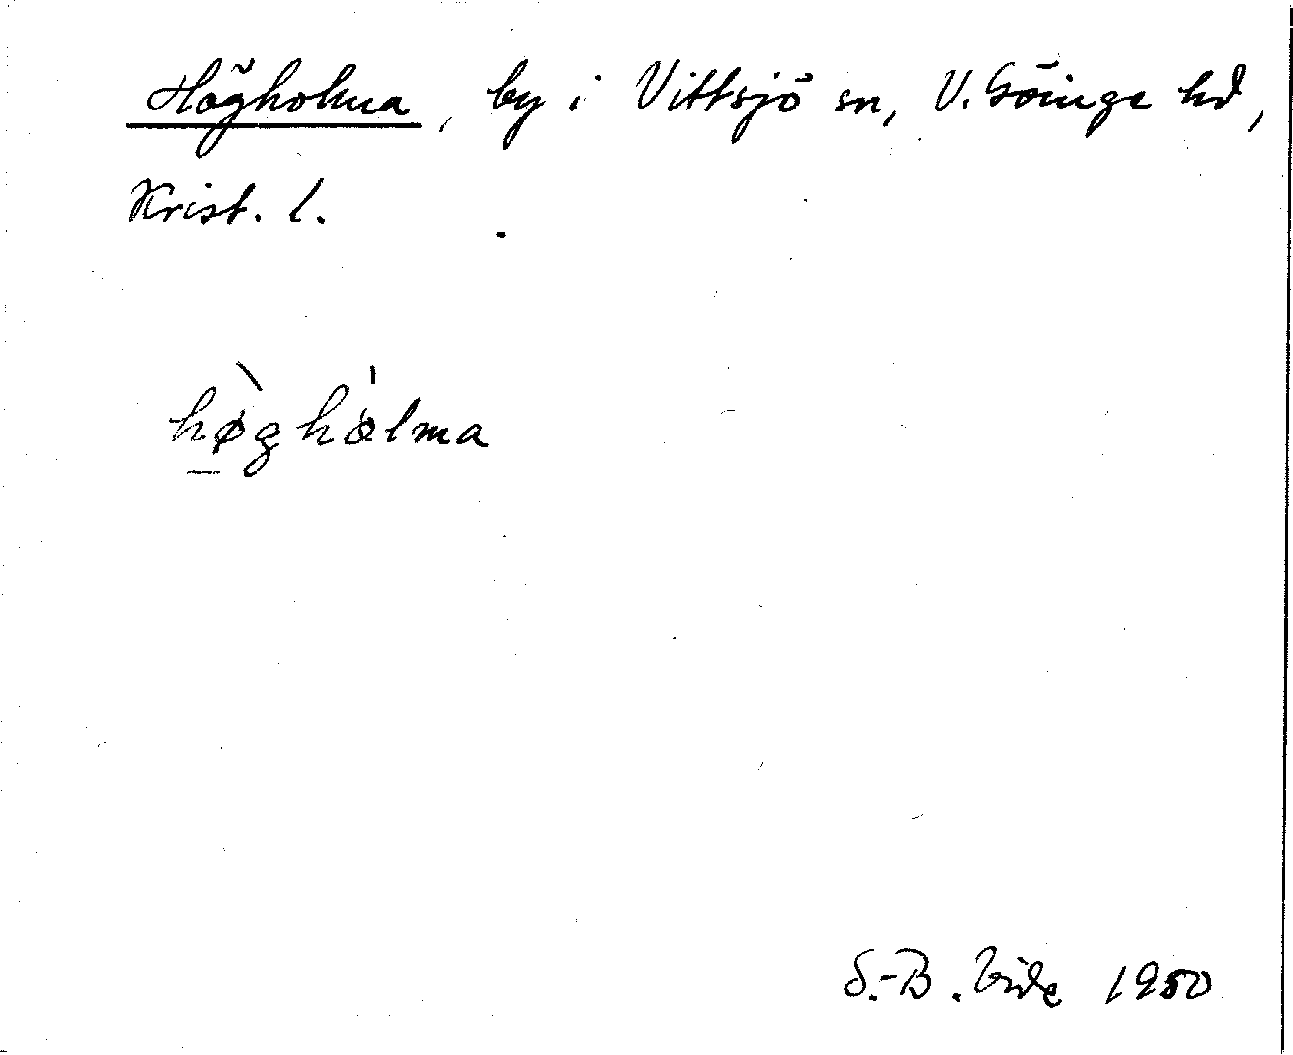 Högholma, by i Vittsjö sn, V. Göinge hd,
Krist. l.
hø̀ghålma
S.-B. Vide 1950